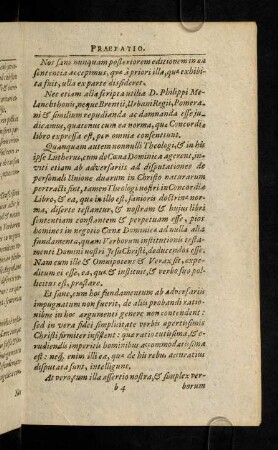 PRÆFATIO.
Nos sanè nunquam posteriorem editionem in ea
sententia accepimus, quæ à priori illa, quæ exhibi-
ta fuit, ulla ex parte dissideret.
Nec etiam alia scripta utilia D. Philippi Me-
lanchthonis, neque Brentii, Urbani Regii, Pomera-
ni & similium repudianda ac damnanda esse ju-
dicamus, quatenus cum ea norma, quæ Concordiæ
libro expressa est, per omnia consentiunt.
Quanquam autem nonnulli Theologi, & in his
ipse Lutherus, cum de Cœna Dominica agerent, in-
viti etiam ab adversariis ad disputationes de
personali Unione duarum in Christo naturarum
pertracti sint, tamen Theologi nostri in Concordiæ
Libro, & ea, quæ in illo est, sanioris doctrinæ nor-
ma, disertè testantur, & nostram & hujus libri
sententiam constantem & perpetuam esse, pios
homines in negotio Cœnæ Dominicæ ad nulla alia
fundamenta, quàm Verborum institutionis testa-
menti Domini nostri Jesu Christi, deducendos esse.
Nam cum ille & Omnipotens & Verax sit, expe-
ditum ei esse, ea, quæ & instituit, & verbo suo pol-
licitus est, præstare.
Et sanè, cum hoc fundamentum ab adversariis
impugnatum non fuerit, de aliis probandi ratio-
nibus in hoc argumenti genere non contendent:
sed in vera fidei simplicitate verbis apertissimis
Christi firmiter insistent: quæ ratio tutissima, & e-
rudiendis imperitis hominibus accommodatissima
est: neq; enim illi ea, quæ de his rebus accuratiùs
disputata sunt, intelligunt.
At verò, cùm illa assertio nostra, & simplex ver-
b 4 borum